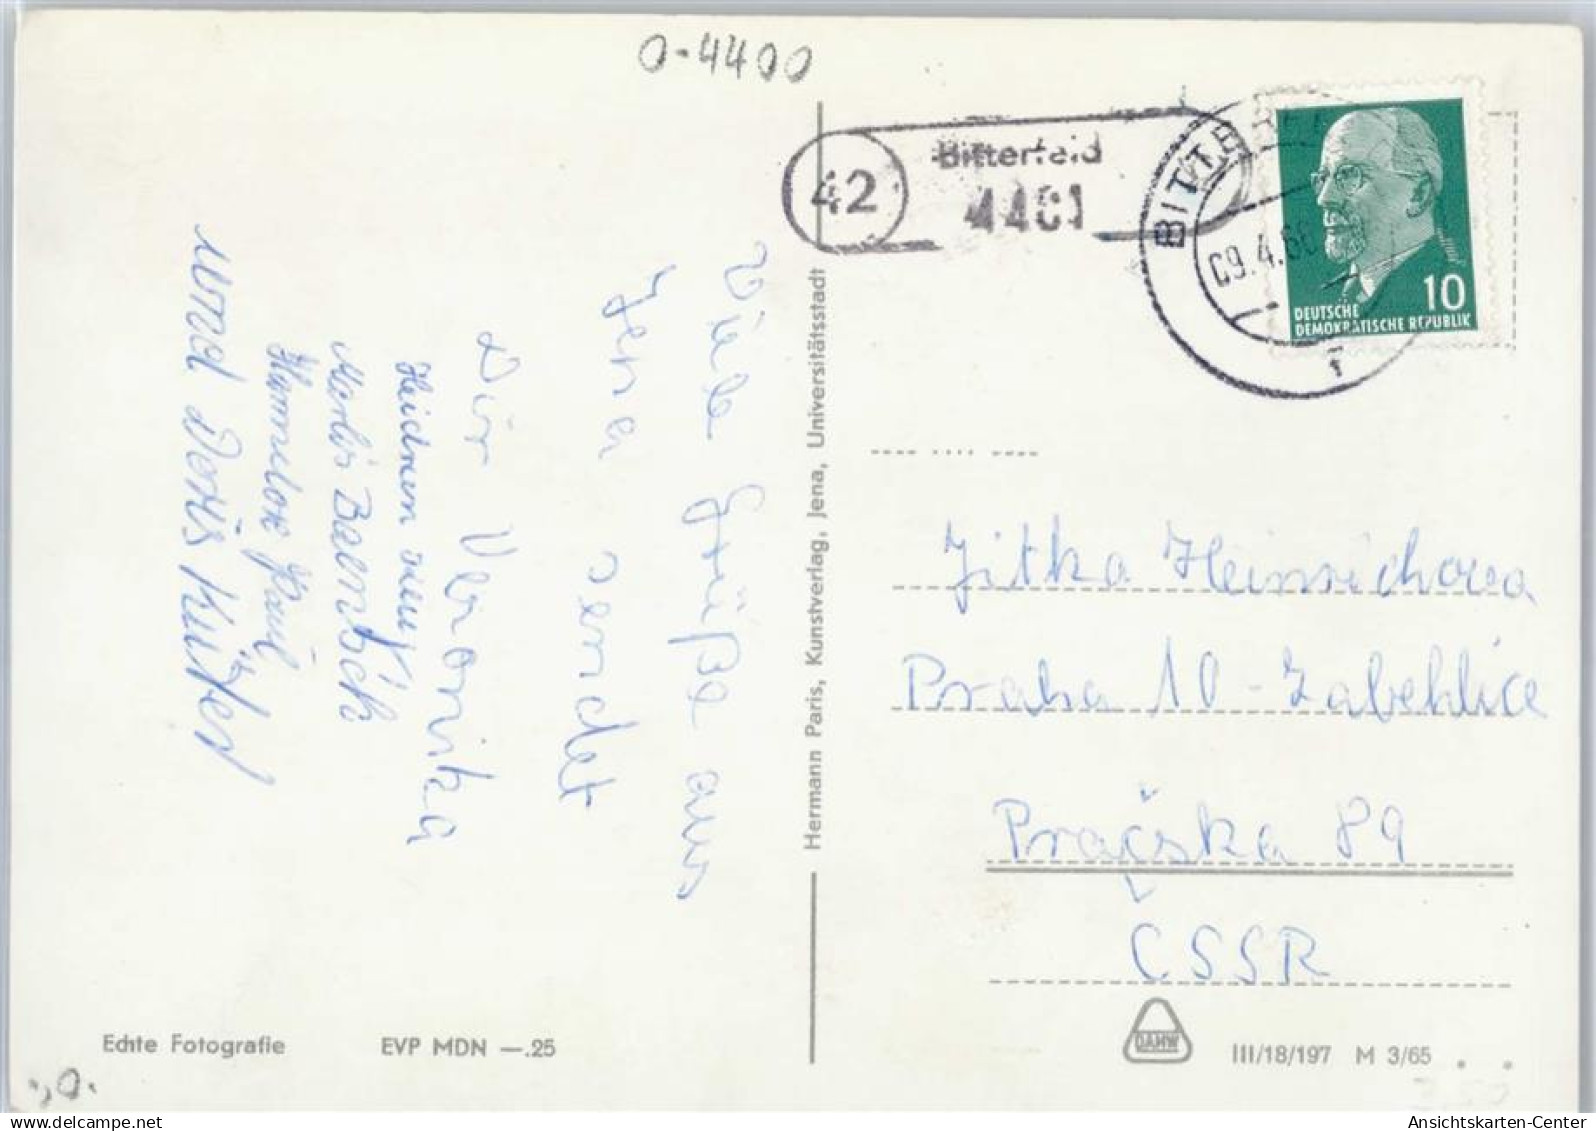 0-4400
42
Bitterfeld
4401
BITTERFELD
09.4.66
10
DEUTSCHE
DEMOKRATISCHE REPUBLIK
Viele Grüße aus
Jena sendet
Dir Veronika
Heidrun
Marlis Baentsch
Paul
und Doris Küster
Hermann Paris, Kunstverlag, Jena, Universitätsstadt
Jitka Heinrichova
Praha 10 - Zabehlice
Pračska 89
ČSSR
Echte Fotografie
EVP MDN —.25
DAHW
III/18/197 M 3/65
Ansichtskarten-Center